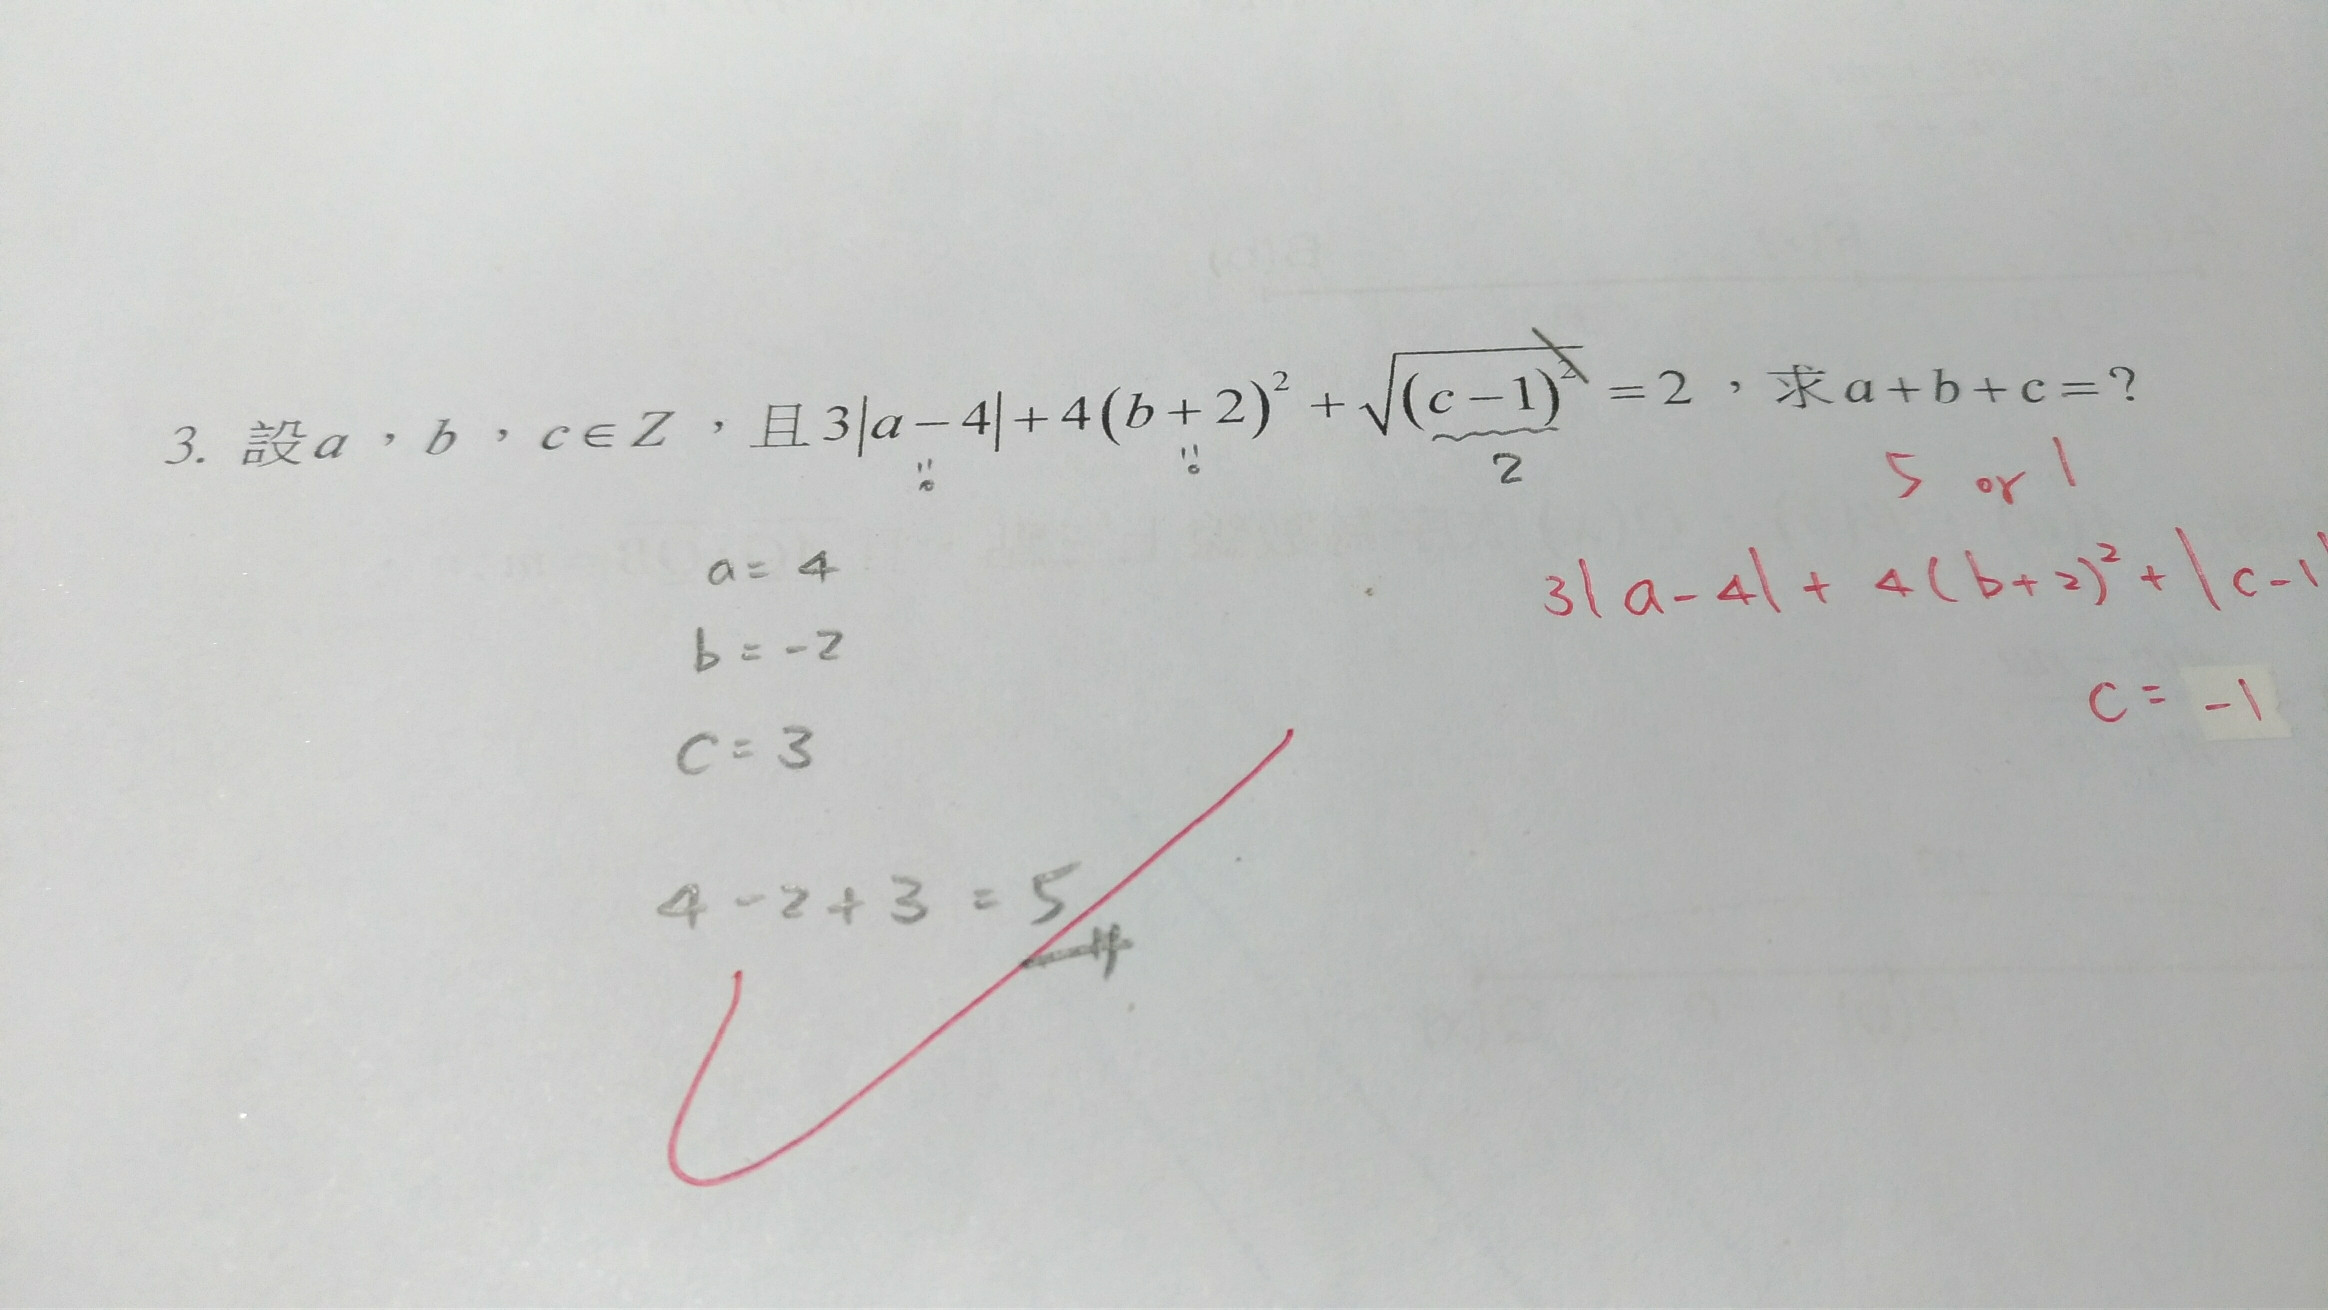 3. 設a，b，c∈Z，且3|a−4|+4(b+2)²+√(c−1)²=2，求a+b+c=？
0 0 2
5 or 1
a=4
3|a-4|+4(b+2)²+|c-1|
b=-2
c=-1
c=3
4-2+3=5